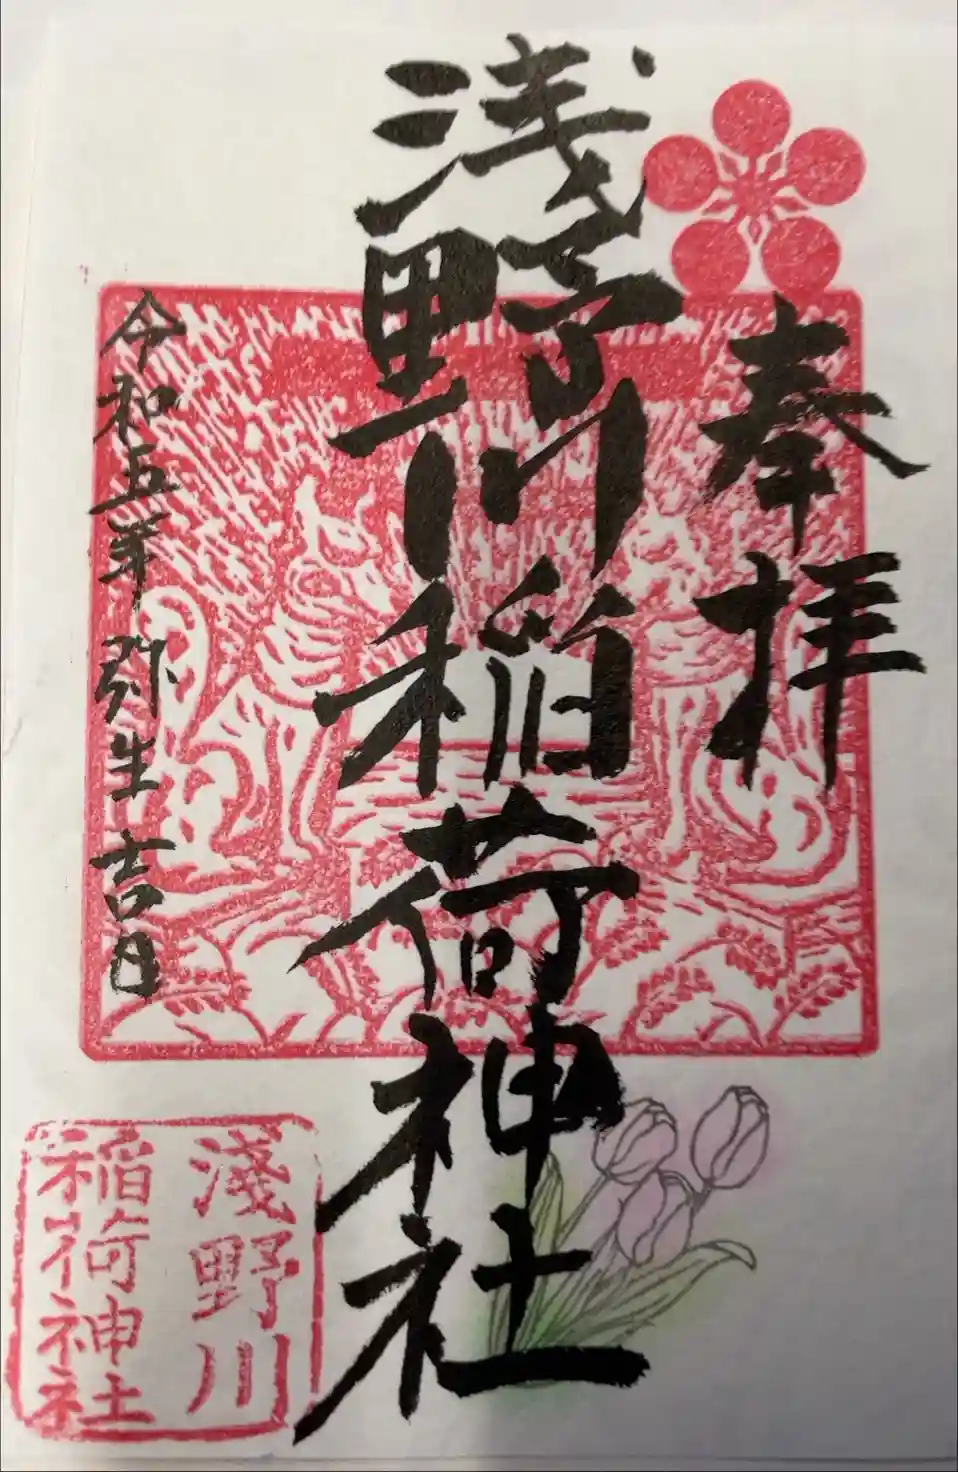 奉拝
浅野川稲荷神社
令和五年 弥生吉日
淺野川
稲荷神社